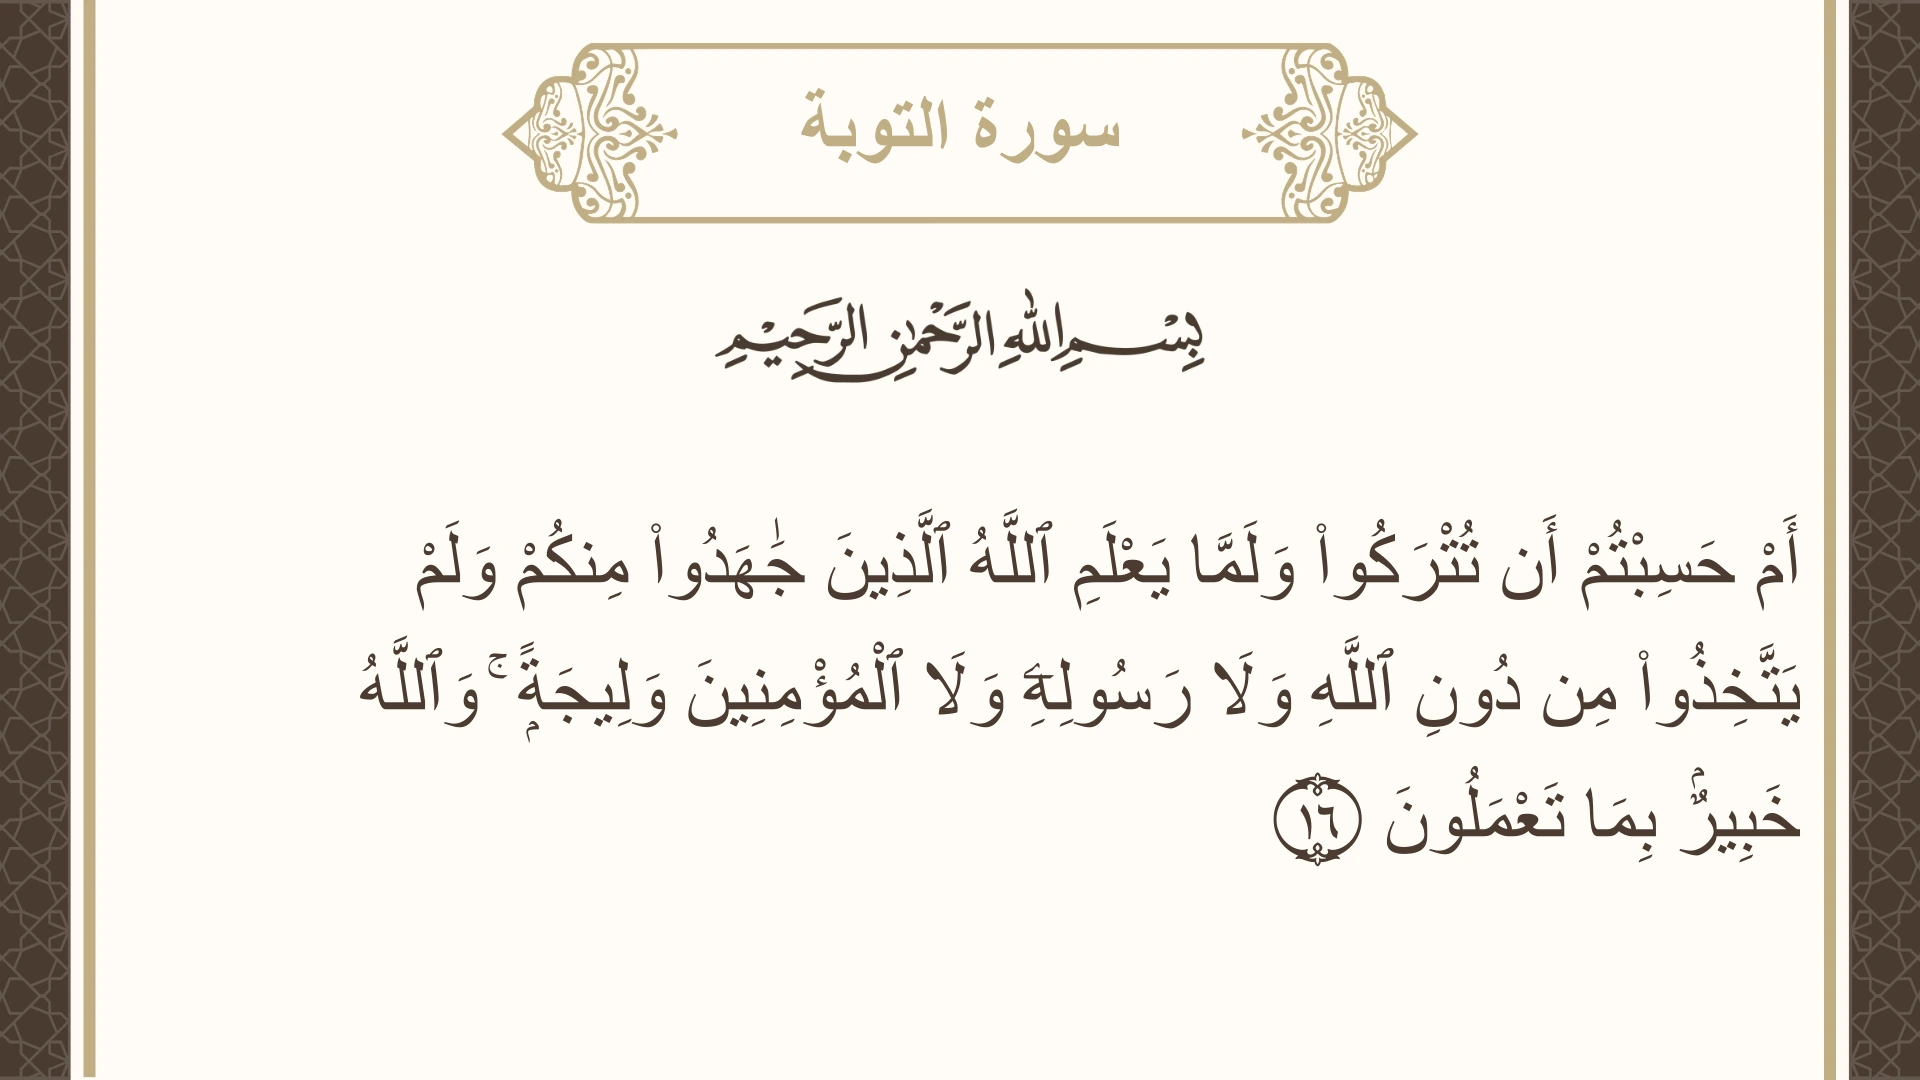 سورة التوبة
بِسْمِ اللهِ الرَّحْمٰنِ الرَّحِيْمِ
أَمْ حَسِبْتُمْ أَن تُتْرَكُوا۟ وَلَمَّا يَعْلَمِ ٱللَّهُ ٱلَّذِينَ جَٰهَدُوا۟ مِنكُمْ وَلَمْ
يَتَّخِذُوا۟ مِن دُونِ ٱللَّهِ وَلَا رَسُولِهِۦ وَلَا ٱلْمُؤْمِنِينَ وَلِيجَةًۭ ۚ وَٱللَّهُ
خَبِيرٌۢ بِمَا تَعْمَلُونَ ١٦